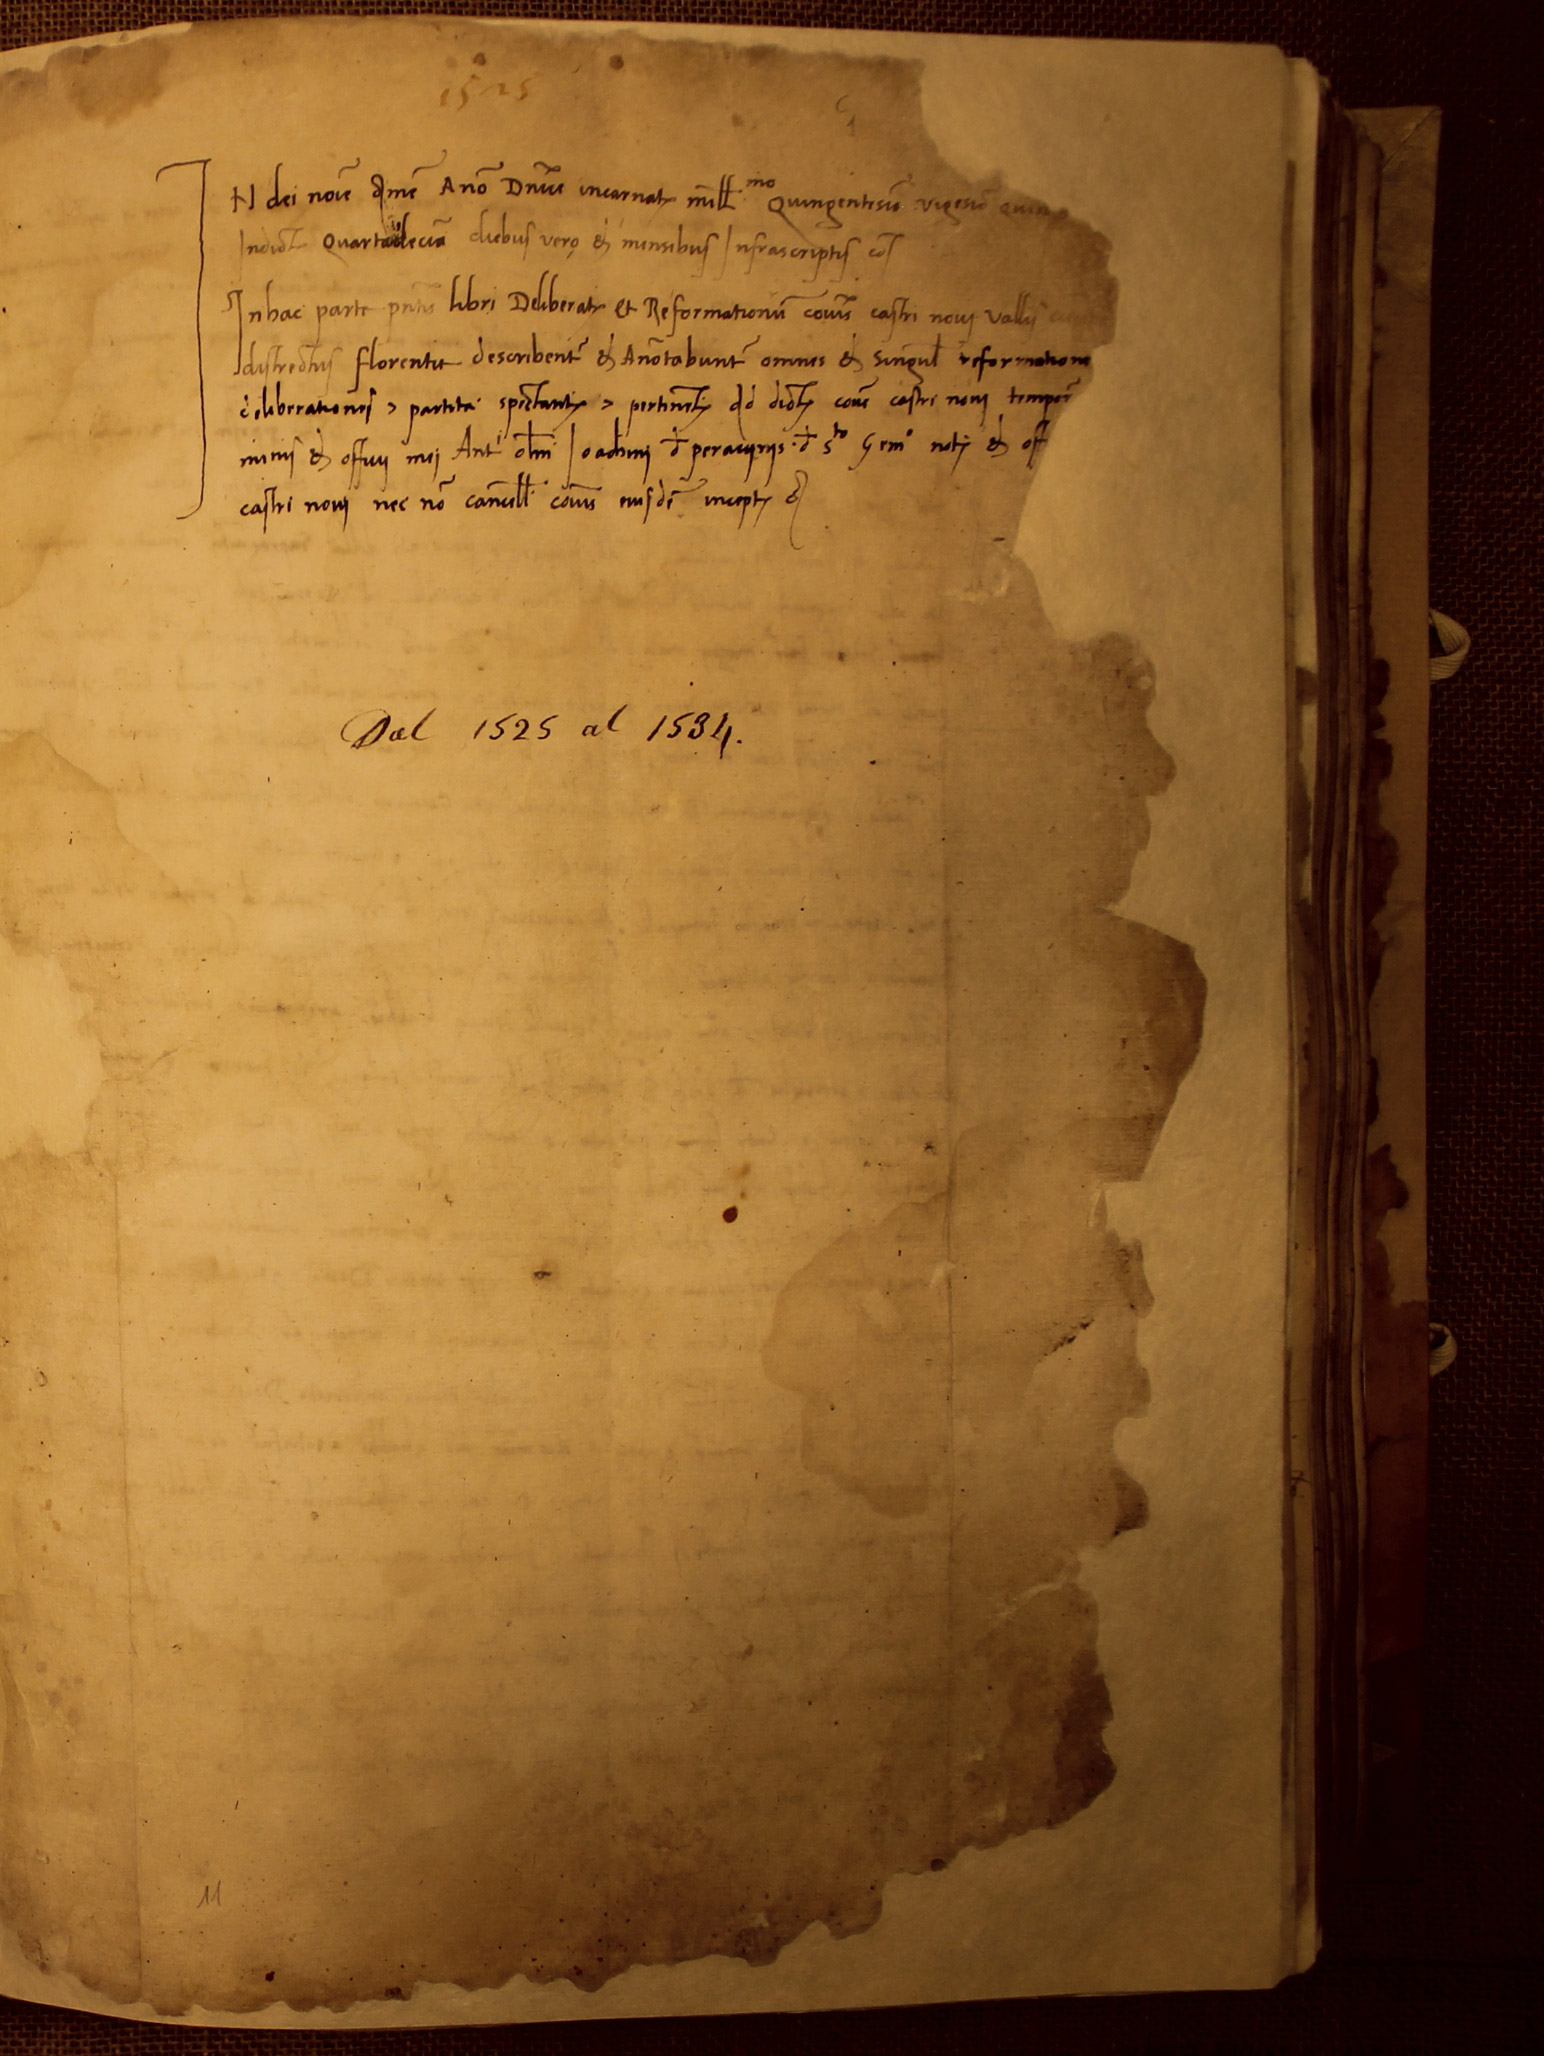 1525
IN dei noīe Amē Anō Dnīce incarnat mill mo Quingentesiō vigesiō quin
Indict Quartadeciā diebus vero & mensibus Infrascriptis
In hac parte pntis libri Deliberat et Reformationū cōis castri novi vallis
districtus florentie describent & Anotabunt omnes & singul reformatione
deliberationes partita spectanti pertineti Ad dict cōe castri novi tempor
& officii mei Ant olim Ioachini d peraccinis d sto Gem not & off
castri novi nec nō cancell cōis eiusdē incept
Dal 1525 al 1534.
11